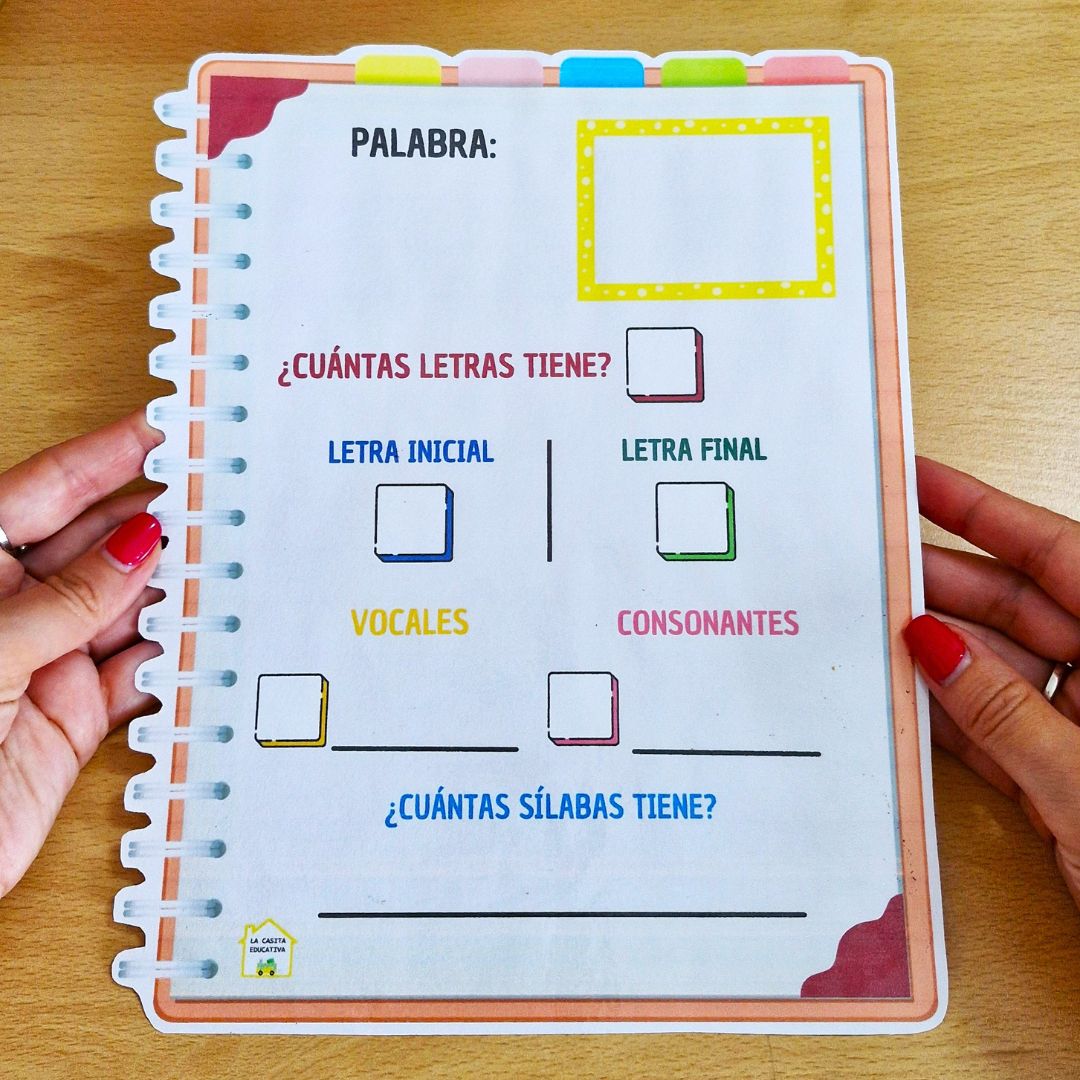 PALABRA:
¿CUÁNTAS LETRAS TIENE?
LETRA INICIAL
LETRA FINAL
VOCALES
CONSONANTES
¿CUÁNTAS SÍLABAS TIENE?
LA CASITA
EDUCATIVA